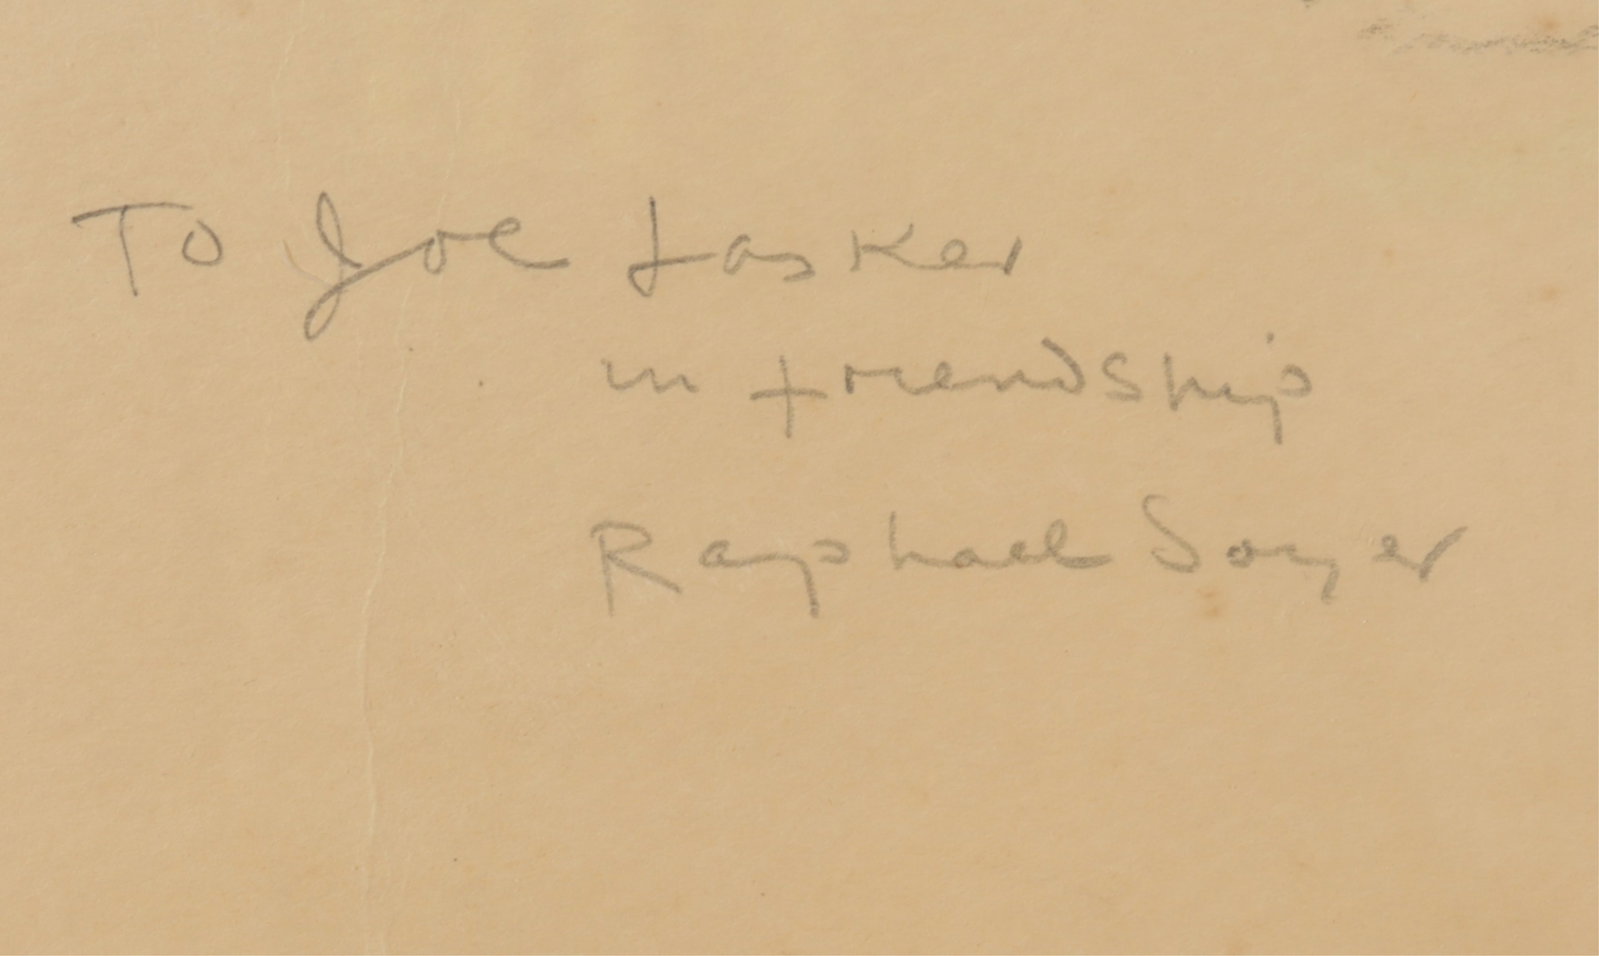 To Joe Lasker
in friendship
Raphael Soyer